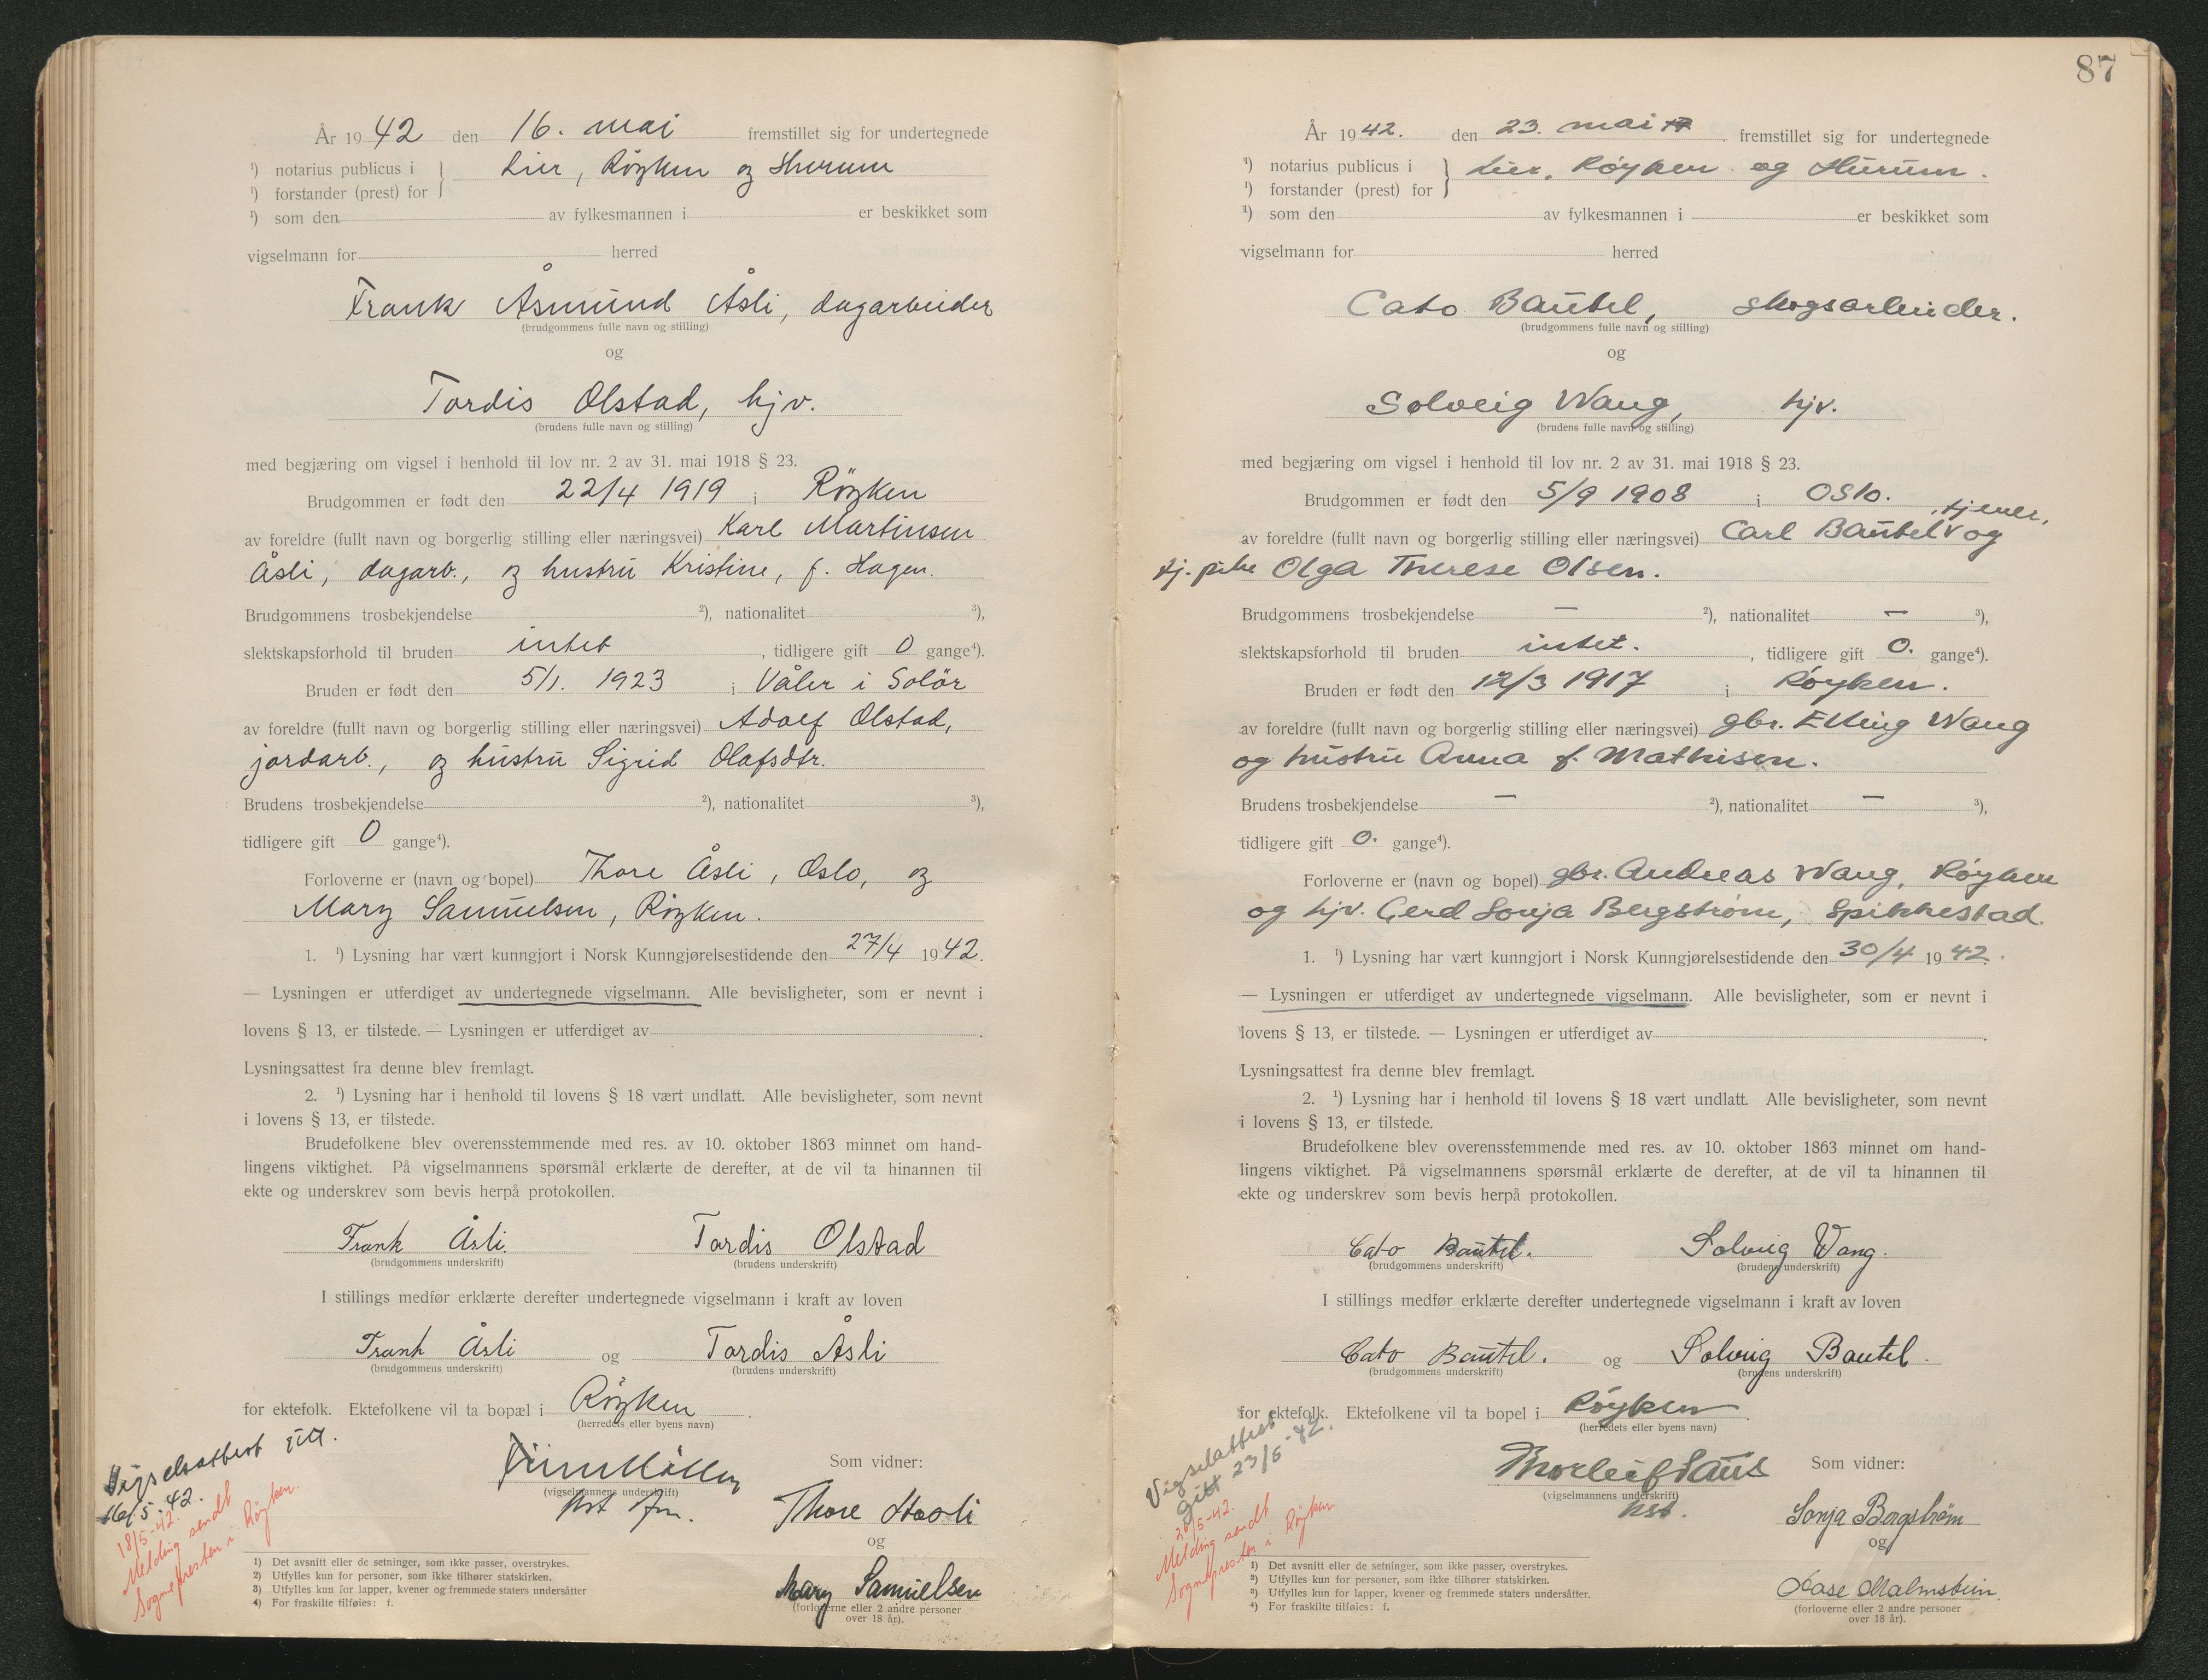 År 1942 den 16. mai fremstillet sig for undertegnede
¹) notarius publicus i } Lier, Röyken og Hurum
¹) forstander (prest) for
¹) som den av fylkesmannen i er beskikket som
vigselmann for herred
Frank Åsmund Åsli, dagarbeider
(brudgommens fulle navn og stilling)
og
Tordis Olstad, hjv.
(brudens fulle navn og stilling)
med begjæring om vigsel i henhold til lov nr. 2 av 31. mai 1918 § 23.
Brudgommen er født den 22/4 1919 i Röyken
av foreldre (fullt navn og borgerlig stilling eller næringsvei) Karl Martinsen
Åsli, dagarb., og hustru Kristine, f. Hagen.
Brudgommens trosbekjendelse ²), nationalitet ³),
slektskapsforhold til bruden intet, tidligere gift 0 gange⁴).
Bruden er født den 5/1. 1923 i Våler i Solör
av foreldre (fullt navn og borgerlig stilling eller næringsvei) Adolf Olstad,
jordarb., og hustru Sigrid Olafsdtr.
Brudens trosbekjendelse ²), nationalitet ³),
tidligere gift 0 gange⁴).
Forloverne er (navn og bopel) Thore Åsli, Oslo, og
Mary Samuelsen, Röyken.
1. ¹) Lysning har vært kunngjort i Norsk Kunngjørelsestidende den 27/4 1942.
— Lysningen er utferdiget av undertegnede vigselmann. Alle bevisligheter, som er nevnt i
lovens § 13, er tilstede. — Lysningen er utferdiget av .
Lysningsattest fra denne blev fremlagt.
2. ¹) Lysning har i henhold til lovens § 18 vært undlatt. Alle bevisligheter, som nevnt
i lovens § 13, er tilstede.
Brudefolkene blev overensstemmende med res. av 10. oktober 1863 minnet om hand-
lingens viktighet. På vigselmannens spørsmål erklærte de derefter, at de vil ta hinannen til
ekte og underskrev som bevis herpå protokollen.
Frank Åsli. Tordis Olstad
(brudgommens underskrift) (brudens underskrift)
I stillings medfør erklærte derefter undertegnede vigselmann i kraft av loven
Frank Åsli og Tordis Åsli
(brudgommens underskrift) (brudens underskrift)
for ektefolk. Ektefolkene vil ta bopæl i Röyken.
(herredets eller byens navn)
Vigselsattest gitt.
16/5-42.
18/5-42.
Melding sendt
Sognepresten i Røyken.
Som vidner:
(vigselmannens underskrift)
Thore Haasli
og
Mary Samuelsen
(forloverne eller 2 andre personer
over 18 år).
1) Det avsnitt eller de setninger, som ikke passer, overstrykes.
2) Utfylles kun for personer, som ikke tilhører statskirken.
3) Utfylles kun for lapper, kvener og fremmede staters undersåtter
4) For fraskilte tilføies: f.
87
År 1942. den 23. mai fremstillet sig for undertegnede
¹) notarius publicus i } Lier, Røyken og Hurum.
¹) forstander (prest) for
¹) som den av fylkesmannen i er beskikket som
vigselmann for herred
Cato Bautel, skogsarbeider.
(brudgommens fulle navn og stilling)
og
Solveig Wang, hjv.
(brudens fulle navn og stilling)
med begjæring om vigsel i henhold til lov nr. 2 av 31. mai 1918 § 23.
Brudgommen er født den 5/9 1908 i Oslo.
av foreldre (fullt navn og borgerlig stilling eller næringsvei) Carl Bautel, tjener, og
tj. pike Olga Therese Olsen.
Brudgommens trosbekjendelse — ²), nationalitet — ³),
slektskapsforhold til bruden intet., tidligere gift 0. gange⁴).
Bruden er født den 12/3 1917 i Røyken.
av foreldre (fullt navn og borgerlig stilling eller næringsvei) gbr. Elling Wang
og hustru Anna f. Mathisen.
Brudens trosbekjendelse — ²), nationalitet — ³),
tidligere gift 0. gange⁴).
Forloverne er (navn og bopel) gbr. Andreas Wang, Røyken
og hjv. Gerd Sonja Bergstrøm, Spikkestad.
1. ¹) Lysning har vært kunngjort i Norsk Kunngjørelsestidende den 30/4 1942.
— Lysningen er utferdiget av undertegnede vigselmann. Alle bevisligheter, som er nevnt i
lovens § 13, er tilstede. — Lysningen er utferdiget av .
Lysningsattest fra denne blev fremlagt.
2. ¹) Lysning har i henhold til lovens § 18 vært undlatt. Alle bevisligheter, som nevnt
i lovens § 13, er tilstede.
Brudefolkene blev overensstemmende med res. av 10. oktober 1863 minnet om hand-
lingens viktighet. På vigselmannens spørsmål erklærte de derefter, at de vil ta hinannen til
ekte og underskrev som bevis herpå protokollen.
Cato Bautel. Solveig Wang.
(brudgommens underskrift) (brudens underskrift)
I stillings medfør erklærte derefter undertegnede vigselmann i kraft av loven
Cato Bautel. og Solveig Bautel.
(brudgommens underskrift) (brudens underskrift)
for ektefolk. Ektefolkene vil ta bopel i Røyken.
(herredets eller byens navn)
Vigselattest
gitt 23/5-42.
26/5-42.
Melding sendt
Sognepresten i Røyken.
Som vidner:
(vigselmannens underskrift)
Sonja Bergstrøm
og
Aase Malmstein.
(forloverne eller 2 andre personer
over 18 år).
1) Det avsnitt eller de setninger, som ikke passer, overstrykes.
2) Utfylles kun for personer, som ikke tilhører statskirken.
3) Utfylles kun for lapper, kvener og fremmede staters undersåtter.
4) For fraskilte tilføies: f.